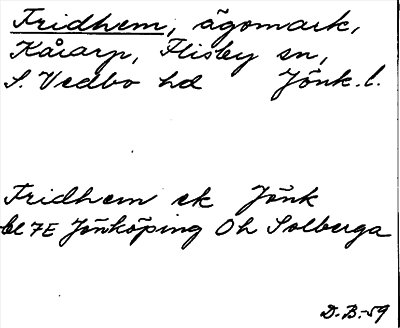 Fridhem, ägomark,
Kåarp, Flisby sn,
S. Vedbo hd Jönk. l.
Fridhem ek Jönk
bl 7E Jönköping Oh Solberga
D.B.-59